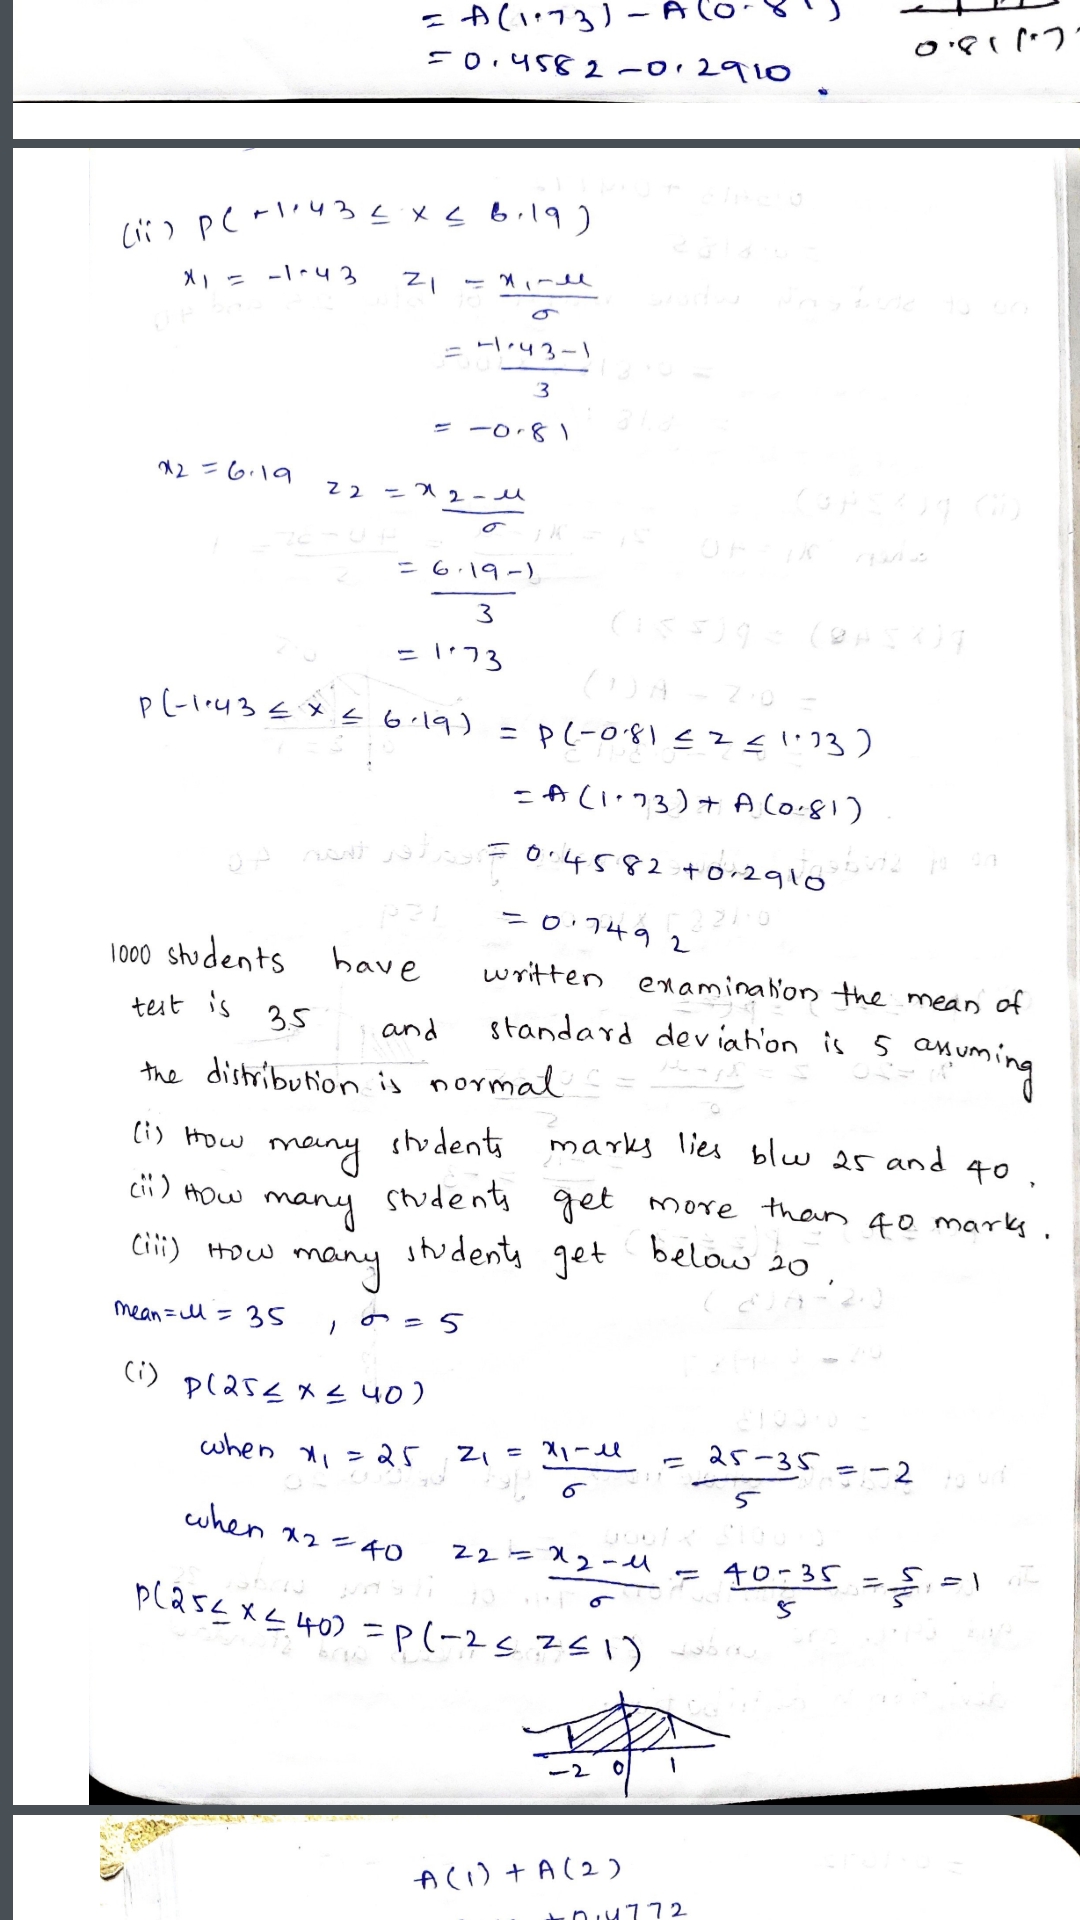 = A(1.73) - A(0.81)
= 0.4582 - 0.2910
0.81 1.7
(ii) P(-1.43 ≤ x ≤ 6.19)
x1 = -1.43 z1 = x1-μ
σ
= -1.43-1
3
= -0.81
x2 = 6.19 z2 = x2-μ
σ
= 6.19-1
3
= 1.73
P(-1.43 ≤ x ≤ 6.19) = P(-0.81 ≤ z ≤ 1.73)
= A(1.73) + A(0.81)
= 0.4582 + 0.2910
= 0.7492
1000 students have written examination the mean of
test is 35 and standard deviation is 5 assuming
the distribution is normal
(i) How many students marks lies b/w 25 and 40.
(ii) How many students get more than 40 marks.
(iii) How many students get below 20.
mean = μ = 35, σ = 5
(i) P(25 ≤ x ≤ 40)
when x1 = 25 z1 = x1-μ = 25-35 = -2
σ 5
when x2 = 40 z2 = x2-μ = 40-35 = 5/5 = 1
σ 5
P(25 ≤ x ≤ 40) = P(-2 ≤ z ≤ 1)
-2 0 1
A(1) + A(2)
+0.4772